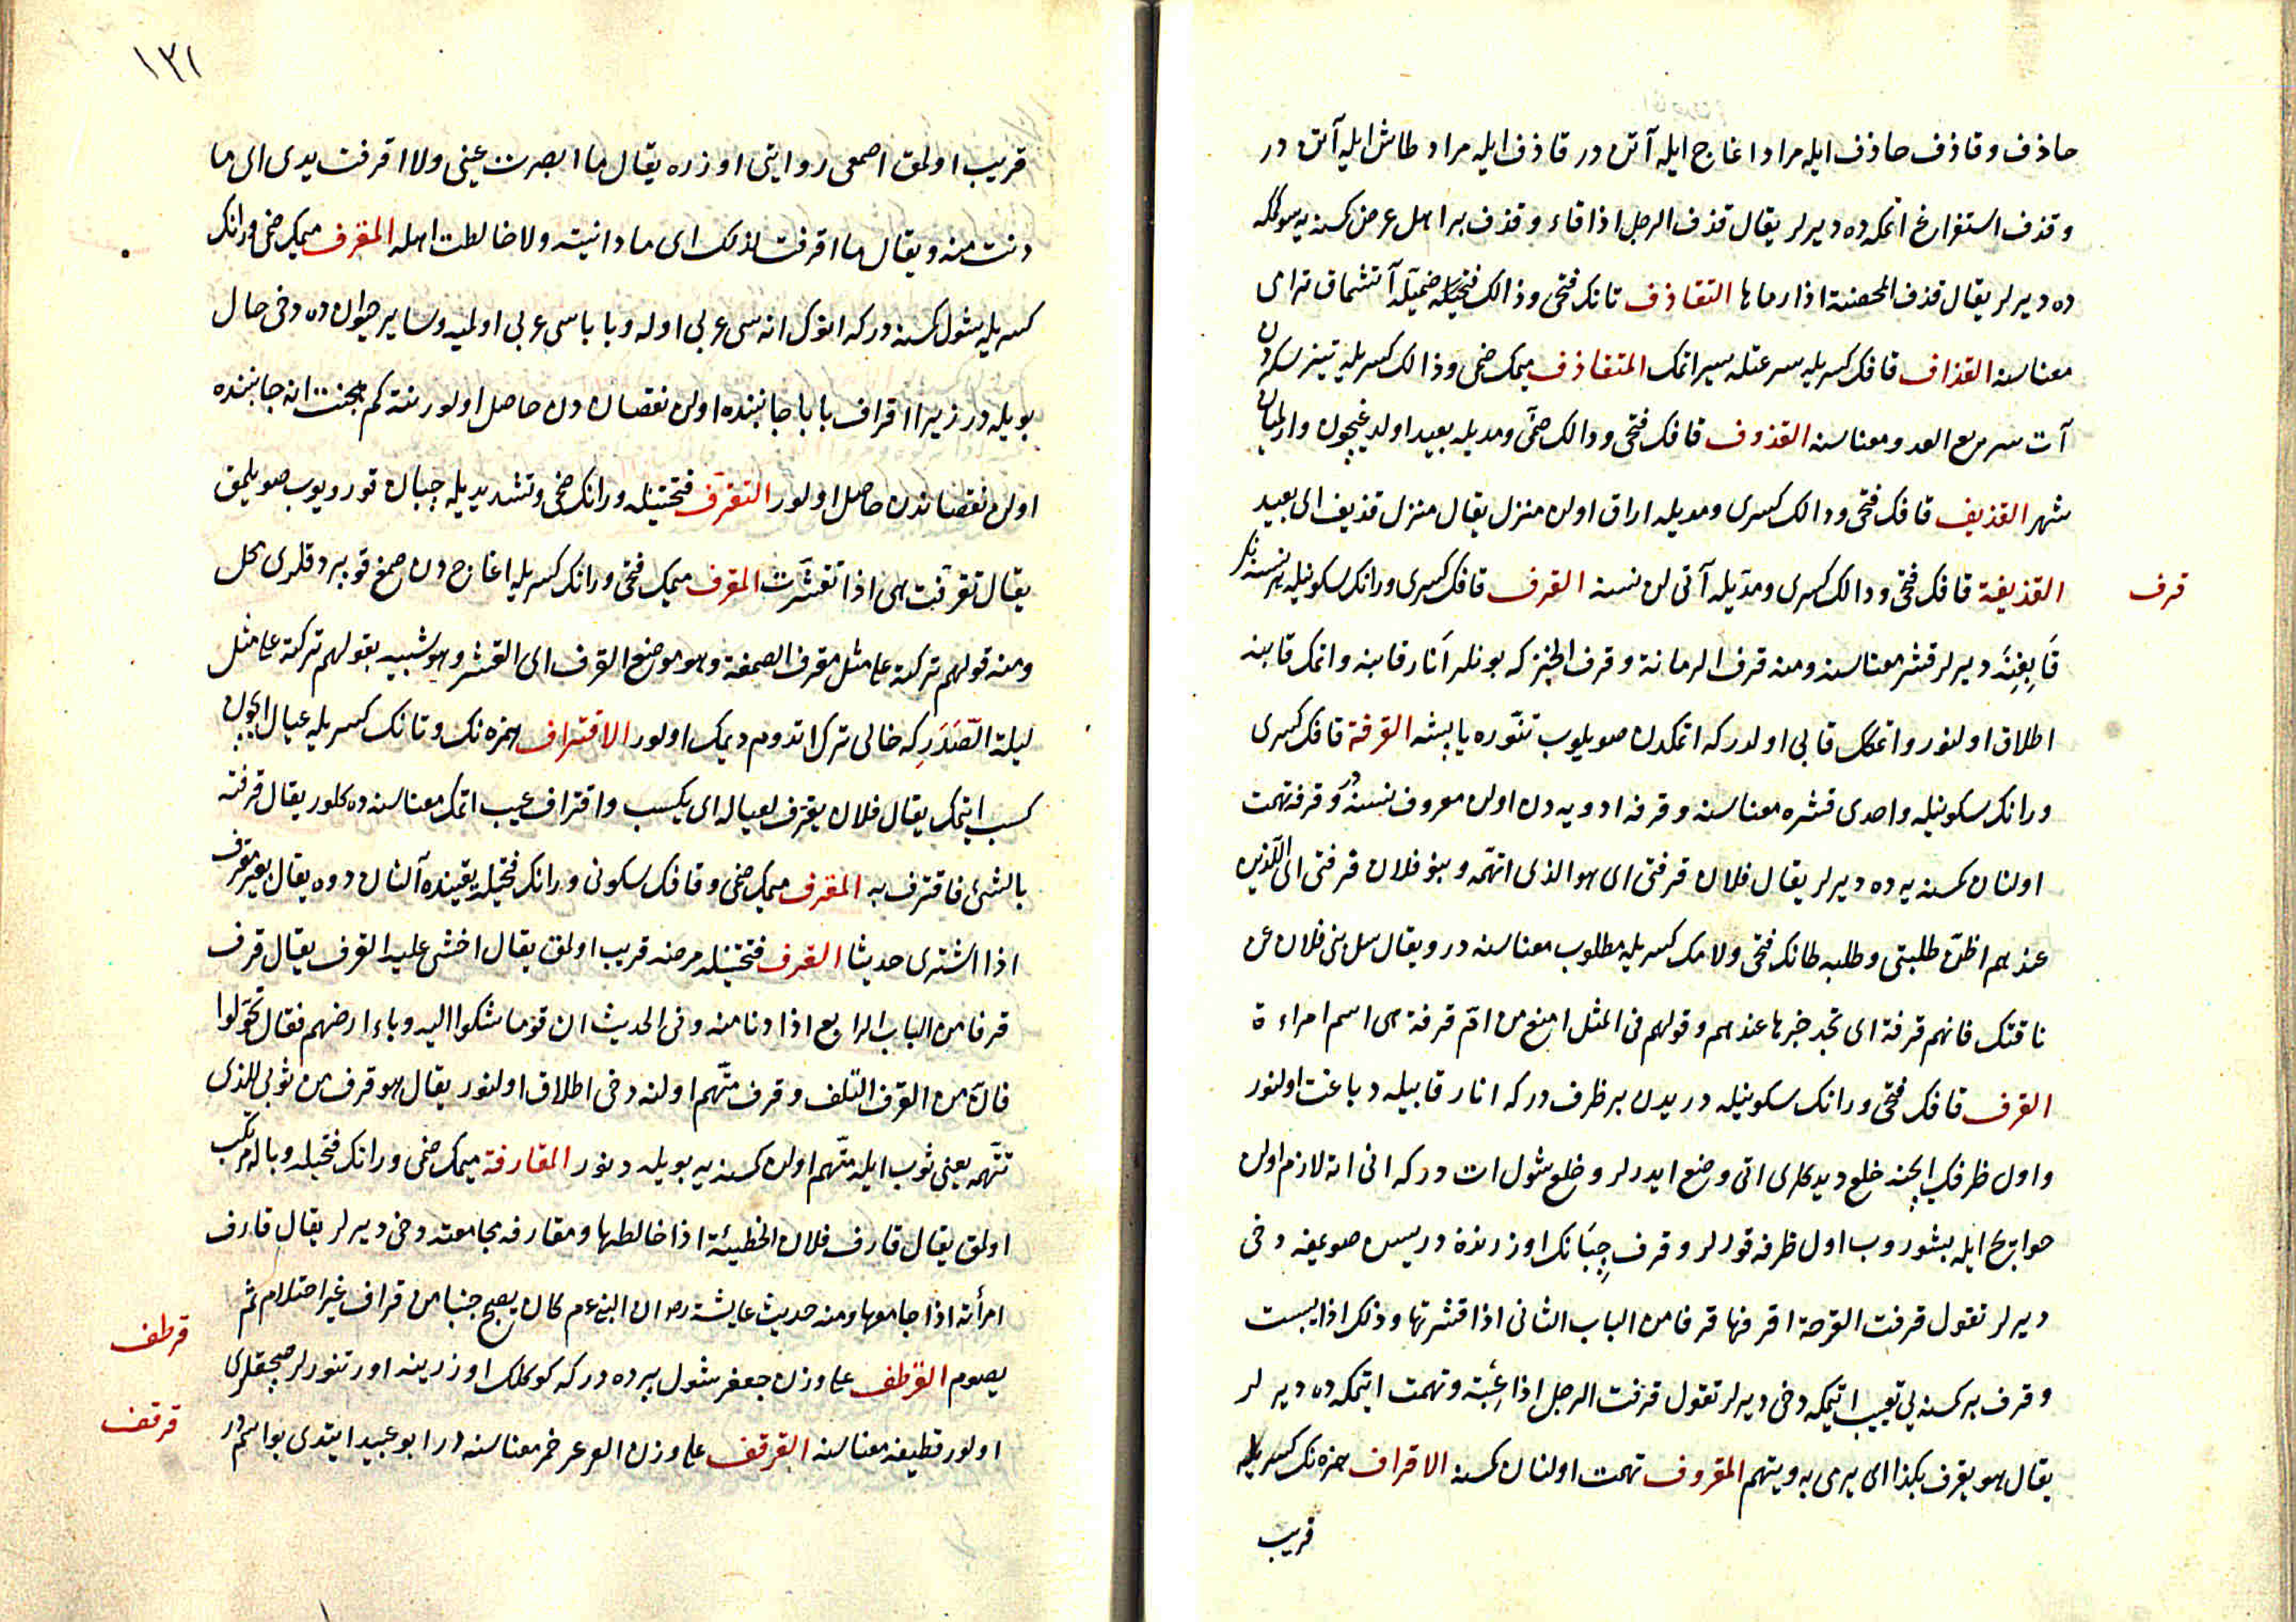 حاذف و قاذف حاذف ايله مراد اغاج ايله آتن در قاذف ايله مراد طاش ايله آتن در
و قذف استفراغ اتمكه ده ديرلر يقال قذف الرجل اذا قاء و قذف بر اهل عرض كسنه يه سوكمگه
ده ديرلر يقال قذف المحصنة اذا رماها التقاذف تانك فتحى و ذالك ضميله آتشماق ترامى
معناسنه القذاف قافك كسريله سرعتله سير اتمك المتقاذف ميمك ضمى و ذالك كسريله تيز سكردن
آت سريع العدو معناسنه القذوف قافك فتحى و ذالك ضمى و مديله بعيد اولديغيچون وارلميان
شهر القذيف قافك فتحى و ذالك كسرى و مديله اراق اولن منزل يقال منزل قذيف اى بعيد
القذيفة قافك فتحى و ذالك كسرى و مديله آتيلن نسنه القرف قافك كسرى و رانك سكونيله بر نسنه نك
قابغنه ديرلر قشر معناسنه و منه قرف الرمانة و قرف الخبز كه بونلر انار قابنه و اتمك قابنه
اطلاق اولنور و اتمكك قابى اولدر كه اتمكدن صويلوب تنوره يابشه القرفة قافك كسرى
و رانك سكونيله واحدى قشره معناسنه و قرفه ادويه دن اولن معروف نسنه در و قرفه تهمت
اولنان كسنه يه ده ديرلر يقال فلان قرفتى اى هو الذى اتهمه و بنو فلان قرفتى اى الذين
عندهم اظن طلبتى و طلبه طانك فتحى و لامك كسريله مطلوب معناسنه در و يقال سل بنى فلان عن
ناقتك فانهم قرفة اى تجد خبرها عندهم و قولهم فى المثل امنع من ام قرفة هى اسم امراءة
القرف قافك فتحى و رانك سكونيله دريدن بر ظرف در كه انار قابيله دباغت اولنور
و اول ظرفك ايچنه خلع ديدكلرى اتى وضع ايدرلر و خلع شول ات در كه انى اته لازم اولن
حوايج ايله بشوروب اول ظرفه قورلر و قرف چبانك اوزرنده دريسن صويمغه دخى
ديرلر تقول قرفت القرحة اقرفها قرفا من الباب الثانى اذا قشرتها و ذلك اذا يبست
و قرف بر كسنه يى تعييب ايتمكه دخى ديرلر تقول قرفت الرجل اذا عبته و تهمت ايتمكه ده ديرلر
يقال هو يقرف بكذا اى يرمى به و يتهم المقروف تهمت اولنان كسنه الاقراف همزه نك كسريله
قريب
قرف
١٣١
قريب اولمق اصمعى روايتى اوزره يقال ما ابصرت عينى ولا اقرفت يدى اى ما
دنت منه و يقال ما اقرفت لذلك اى ما دانيته ولا خالطت اهله المقرف ميمك ضمى و رانك
كسريله شول كسنه در كه انوك اناسى عربى اوله و باباسى عربى اولميه و ساير حيوان ده دخى حال
بويله در زيرا اقراف بابا جانبنده اولن نقصان دن حاصل اولور نته كم هجنت انه جانبنده
اولن نقصاندن حاصل اولور التقرف فتحتيله و رانك ضمى و تشديديله چبان قورويوب صويلمق
يقال تقرفت هى اذا تقشرت المقرف ميمك فتحى و رانك كسريله اغاج دن صمغ قوپردقلرى محل
و منه قولهم تركته على مثل مقرف الصمغة و هو موضع القرف اى القشر و هو شبيه بقولهم تركته على مثل
ليلة الصدر كه خالى ترك اتدوم ديمك اولور الاقتراف همزه نك و تانك كسريله عيال ايچون
كسب ايتمك يقال فلان يقترف لعياله اى يكسب و اقتراف عيب اتمك معناسنه ده كلور يقال قرفته
بالشئ فاقترف به المقرف ميمك ضمى و قافك سكونى و رانك فتحيله يقينده آلنان دوه يقال بعير مقرف
اذا اشترى حديثا القرف فتحتيله مرضه قريب اولمق يقال اخشى عليه القرف يقال قرف
قرفا من الباب الرابع اذا دنا منه و فى الحديث ان قوما شكوا اليه وباء ارضهم فقال تحولوا
فان من القرف التلف و قرف متهم اولنه دخى اطلاق اولنور يقال هو قرف من ثوبى للذى
تتهمه يعنى ثوب ايله متهم اولن كسنه يه بويله دينور المقارفة ميمك ضمى و رانك فتحيله وباله مرتكب
اولمق يقال قارف فلان الخطيئة اذا خالطها و مقارفه مجامعته دخى ديرلر يقال قارف
امرأته اذا جامعها و منه حديث عايشة رض ان النبى عم كان يصبح جنبا من قراف غير احتلام ثم
يصوم القرطف على وزن جعفر شول پرده در كه كوكلك اوزرينه اورتنورلر صچقلرى
اولور قطيفه معناسنه القرقف على وزن العرعر خمر معناسنه در ابو عبيد ايتدى بو اسم در
قرطف
قرقف